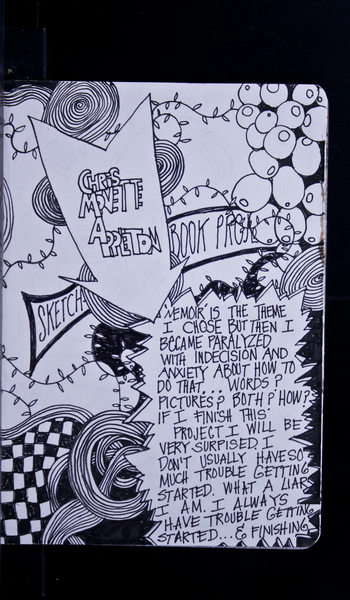 CHRIS
MOVETTE
APPLETON
BOOK PROJECT
SKETCH
MEMOIR IS THE THEME
I CHOSE BUT THEN I
BECAME PARALYZED
WITH INDECISION AND
ANXIETY ABOUT HOW TO
DO THAT... WORDS?
PICTURES? BOTH? HOW?
IF I FINISH THIS
PROJECT I WILL BE
VERY SURPISED I
DON'T USUALLY HAVE SO
MUCH TROUBLE GETTING
STARTED. WHAT A LIAR
I AM. I ALWAYS
HAVE TROUBLE GETTING
STARTED... & FINISHING